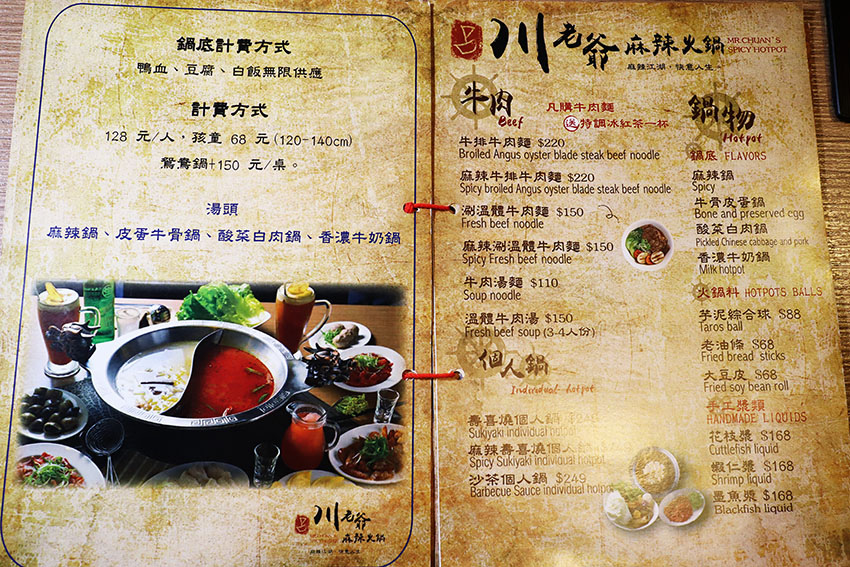 鍋底計費方式
鴨血、豆腐、白飯無限供應
計費方式
128 元/人，孩童 68 元 (120-140cm)
鴛鴦鍋+150 元/桌。
湯頭
麻辣鍋、皮蛋牛骨鍋、酸菜白肉鍋、香濃牛奶鍋
川老爺
麻辣火鍋
麻辣江湖，快意人生
川老爺 麻辣火鍋 MR.CHUAN'S
SPICY HOTPOT
麻辣江湖，快意人生
牛肉
Beef
凡購牛肉麵
送特調冰紅茶一杯
牛排牛肉麵 $220
Broiled Angus oyster blade steak beef noodle
麻辣牛排牛肉麵 $220
Spicy broiled Angus oyster blade steak beef noodle
涮溫體牛肉麵 $150
Fresh beef noodle
麻辣涮溫體牛肉麵 $150
Spicy Fresh beef noodle
牛肉湯麵 $110
Soup noodle
溫體牛肉湯 $150
Fresh beef soup (3-4人份)
個人鍋
Individual hotpot
壽喜燒個人鍋
Sukiyaki individual hotpot
麻辣壽喜燒個人鍋
Spicy Sukiyaki individual hotpot
沙茶個人鍋 $249
Barbecue Sauce individual hotpot
鍋物
Hotpot
鍋底 FLAVORS
麻辣鍋
Spicy
牛骨皮蛋鍋
Bone and preserved egg
酸菜白肉鍋
Pickled Chinese cabbage and pork
香濃牛奶鍋
Milk hotpot
火鍋料 HOTPOTS BALLS
芋泥綜合球 $88
Taros ball
老油條 $68
Fried bread sticks
大豆皮 $68
Fried soy bean roll
手工漿類
HANDMADE LIQUIDS
花枝漿 $168
Cuttlefish liquid
蝦仁漿 $168
Shrimp liquid
墨魚漿 $168
Blackfish liquid